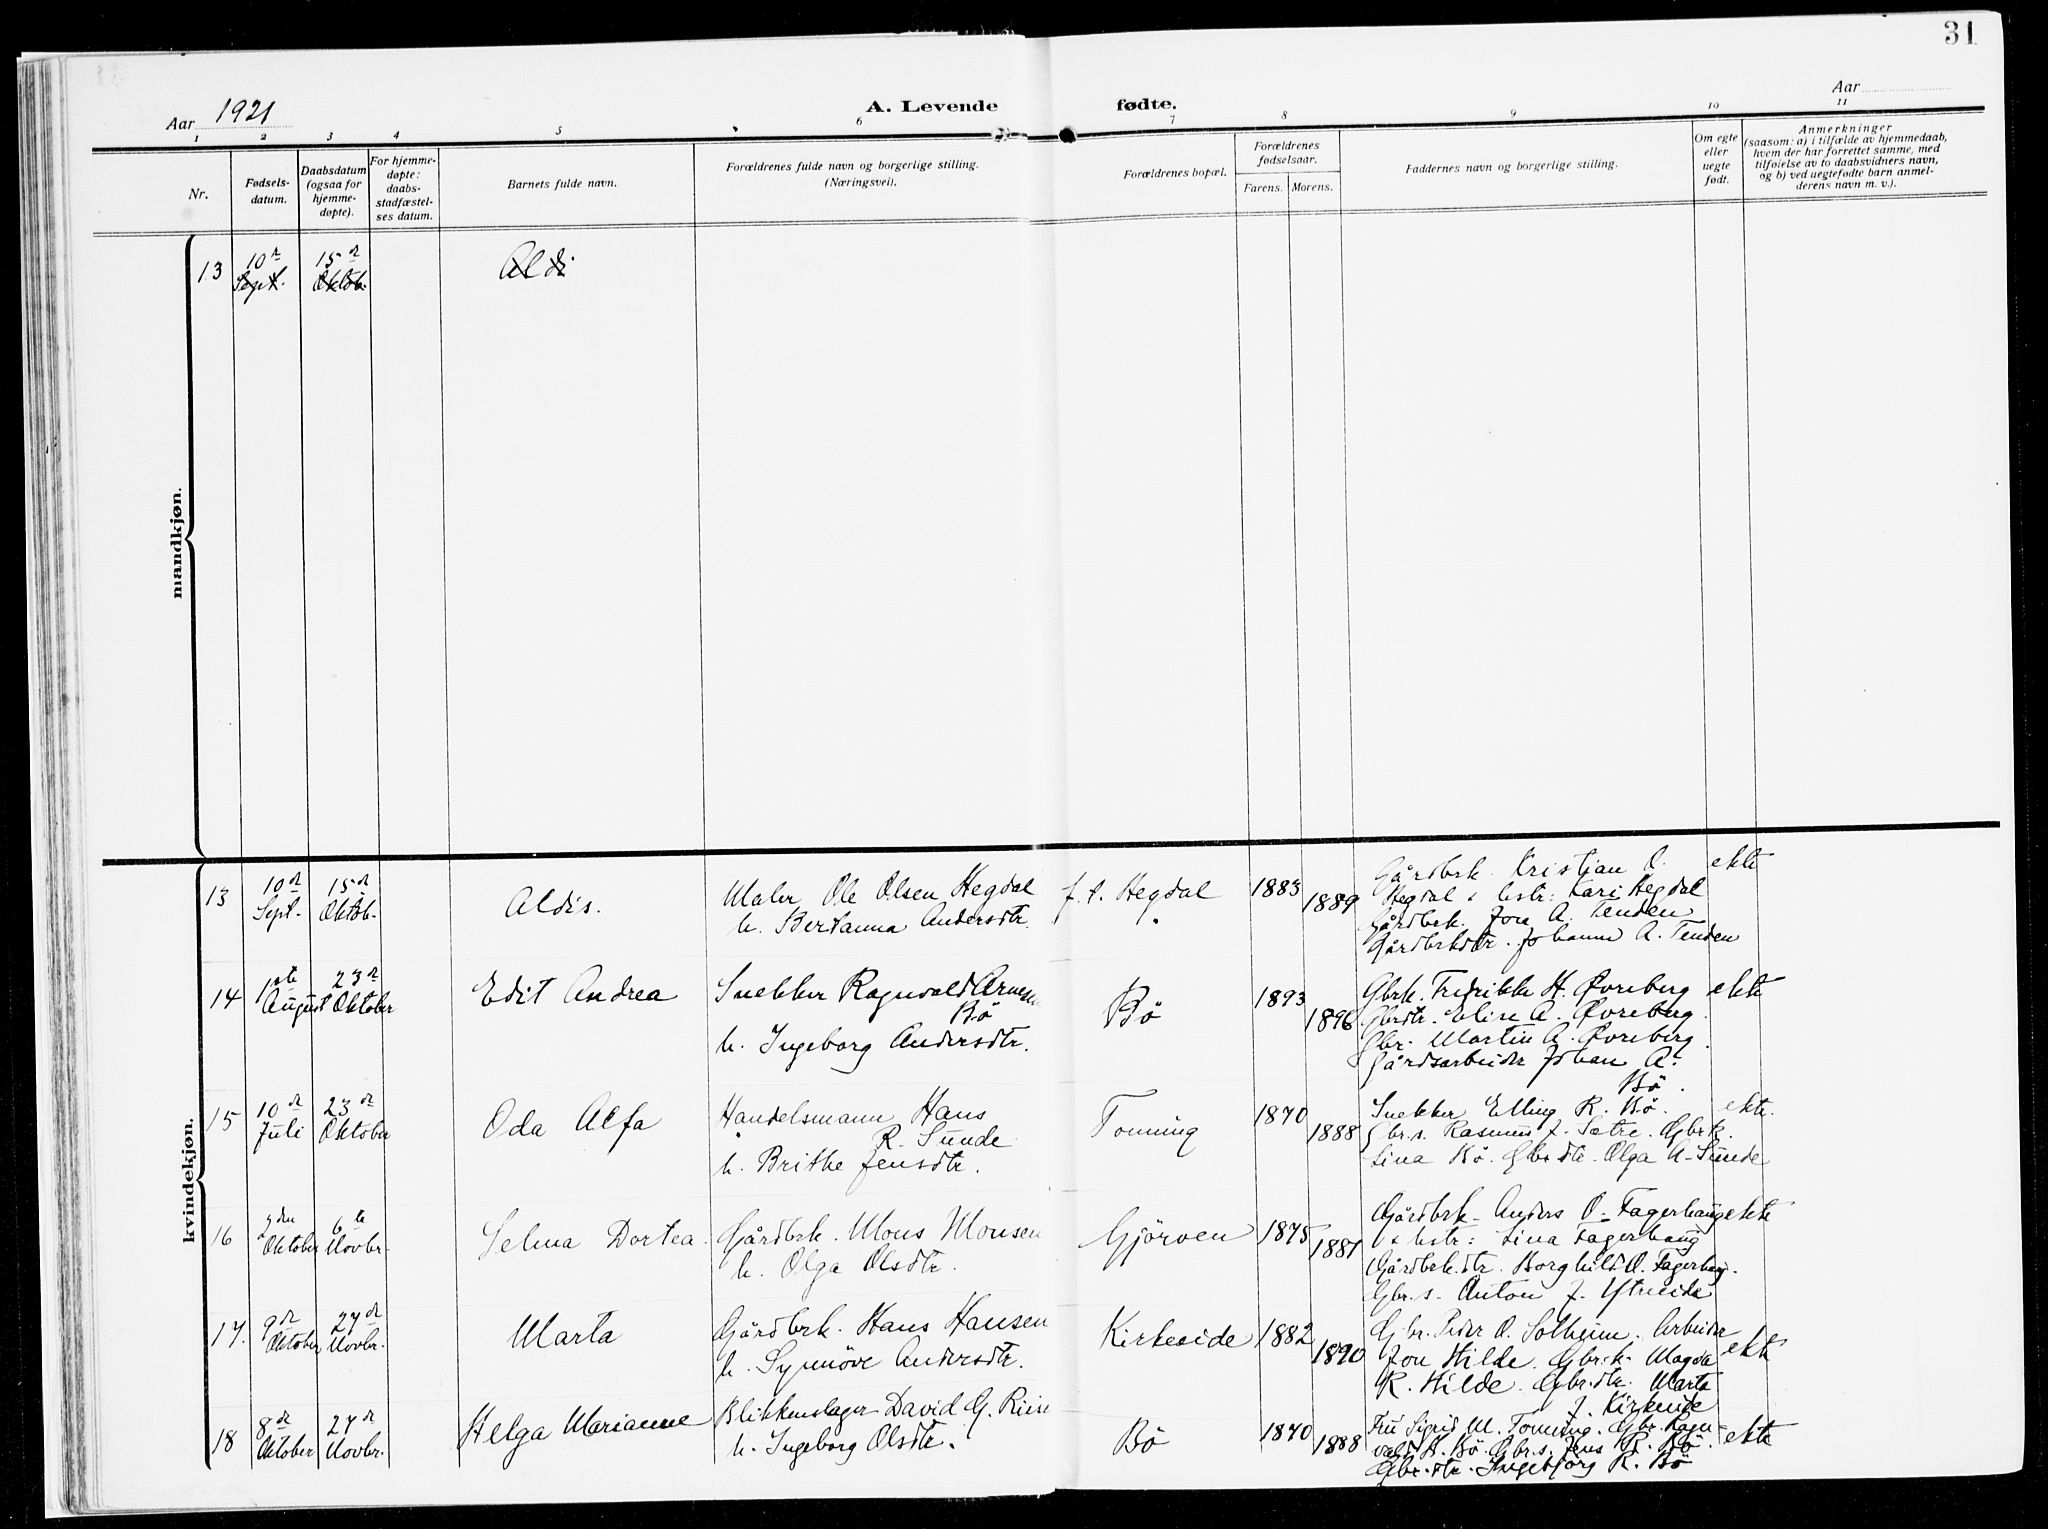 31
Aar 1921
A. Levende fødte.
Aar
1 2 3 4 5 6 7 8 9 10 11
Nr.
Fødsels-
datum.
Daabsdatum
(ogsaa for
hjemme-
døpte).
For hjemme-
døpte:
daabs-
stadfæstel-
ses datum.
Barnets fulde navn.
Forældrenes fulde navn og borgerlige stilling.
(Næringsvei).
Forældrenes bopæl.
Forældrenes
fødselsaar.
Farens. Morens.
Faddernes navn og borgerlige stilling.
Om egte
eller
uegte
født.
Anmerkninger
(saasom: a) i tilfælde av hjemmedaab,
hvem der har forrettet samme, med
tilføielse av to daabsvidners navn,
og b) ved uegtefødte barn anmel-
derens navn m. v.).
mandkjøn.
13 10de Sept. 15de Oktob. Aldi
kvindekjøn.
13 10de Sept. 15de Oktob. Aldis.
Maler Ole Olsen Hegdal
h. Bertanna Andersdtr.
f. t. Hegdal 1883 1889
Gårdbrk. Kristian O.
Hegdal & hstr: Kari Hegdal
Gårdbrk. Jon A. Tenden
Gårdbrkdtr. Johanne A. Tenden
ekte
14 1ste August 23de Oktober Edit Andrea
Snekker Ragnvald Arnesen
Bö
h. Ingeborg Andersdtr.
Bö 1893 1896
Gbrk. Fredrikke H. Øvreberg
Gbrdtr. Elise A. Øvreberg.
Gbr. Martin A. Øvreberg.
Gårdsarbeider Johan A.
Bö.
ekte
15 10de Juli 23de Oktober Oda Alfa
Handelsmann Hans
R. Sunde
h. Brithe Jensdtr.
Tonning 1870 1888
Snekker Elling R. Bö.
Gbr.s. Rasmus J. Sætre. Gbrk.
Lina Bö. Gbrdtr. Olga A. Sunde
ekte.
16 2den Oktober 6te Novbr. Selma Dortea.
Gårdbrk. Mons Monsen
h. Olga Olsdtr.
Gjörven 1875 1881
Gårdbrk. Anders O. Fagerhaug
& hstr: Lina Fagerhaug
Gårdbrk.dtr. Borghild O. Fagerhaug.
Gbr.s. Anton J. Ytreeide
ekte
17. 9de Oktober 27de Novbr. Marta
Gårdbrk. Hans Hansen
h. Synnöve Andersdtr.
Kirkeeide 1882 1890
Gbr. Peder O. Solheim. Arbeider
Jon Hilde. Gbr.k. Magda
R. Hilde. Gbr.dtr. Marta
J. Kirkeeide
ekte
18 8de Oktober 27de Novbr. Helga Marianne
Blikkenslager David G. Riise
h. Ingeborg Olsdtr.
Bö 1870 1888
Fru Sigrid M. Tonning. Gbr. Ragn-
vald K. Bö. Gbr.s. Jens R. Bö.
Gbr.dtr. Ingebjörg R. Bö
ekte